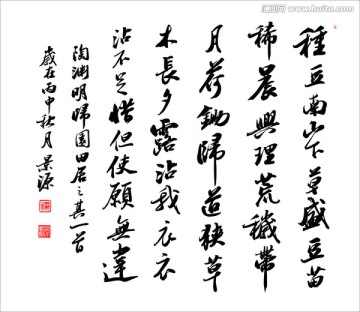 種豆南山下草盛豆苗
稀晨興理荒穢帶
月荷鋤歸道狹草
木長夕露沾我衣衣
沾不足惜但使願無違
陶渊明歸園田居之其一首
歲在丙申秋月景源
www.huitu.com